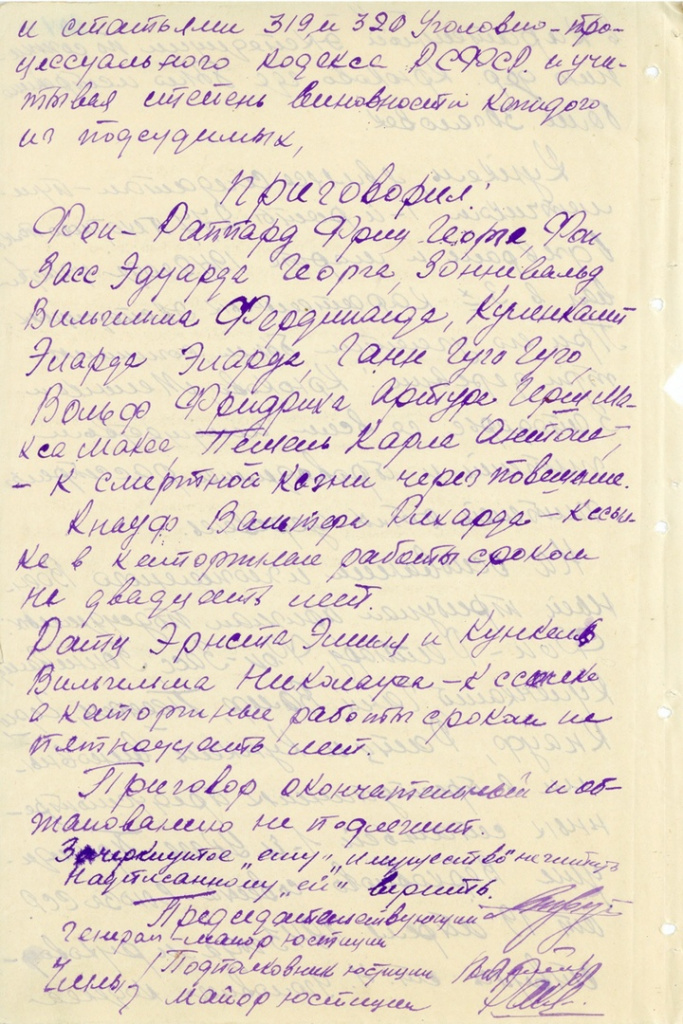 и статьями 319 и 320 Уголовно-про-
цессуального Кодекса РСФСР и учи-
тывая степень виновности каждого
из подсудимых,
Приговорил:
Фон-Раппард Фриц Георга, Фон
Засс Эдуарда Георга, Зонненвальд
Вильгельма Фердинанда, Куленкамп
Эларда Эларда, Ганн Гуго Гуго,
Вольф Фридриха Артура Герм. Ма-
кса Макса, Пешель Карла Антон,
- к смертной казни через повешение.
Кнауф Вальтера Рихарда - к ссыл-
ке в каторжные работы сроком
на двадцать лет.
Рату Эрнста Эмиля и Кункель
Вильгельма Николауса - к ссылке
в каторжные работы сроком на
пятнадцать лет.
Приговор окончательный и об-
жалованию не подлежит.
Зачеркнутое "ему", "имущество" не читать
Надписанному "ей" верить.
Председательствующий
Генерал-майор юстиции
Члены / Подполковник юстиции
майор юстиции